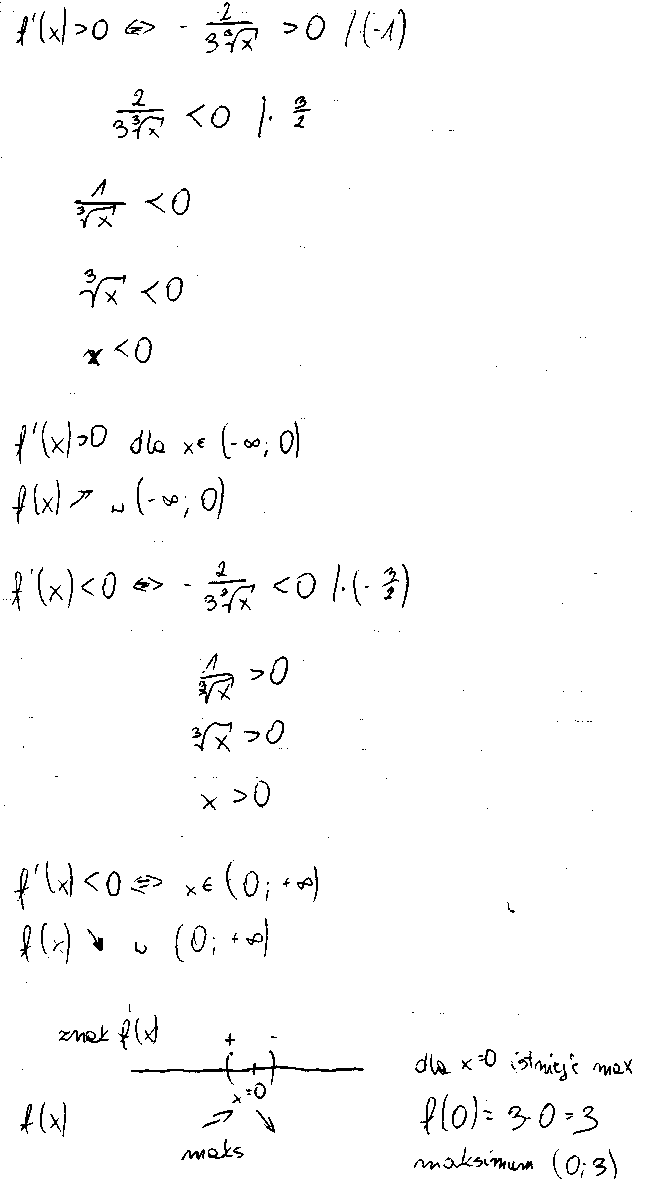 f'(x)>0 ⇔ - 2/(3∛x) > 0 /(-1)
2/(3∛x) < 0 /· 3/2
1/∛x < 0
∛x < 0
x < 0
f'(x)>0 dla x∈(-∞; 0)
f(x) ↗ w (-∞; 0)
f'(x)<0 ⇔ - 2/(3∛x) < 0 /·(- 3/2)
1/∛x > 0
∛x > 0
x > 0
f'(x)<0 ⇔ x∈(0; +∞)
f(x) ↘ w (0; +∞)
znak f'(x) + -
x=0
f(x) ↗ ↘
maks
dla x=0 istnieje max
f(0)= 3-0=3
maksimum (0; 3)